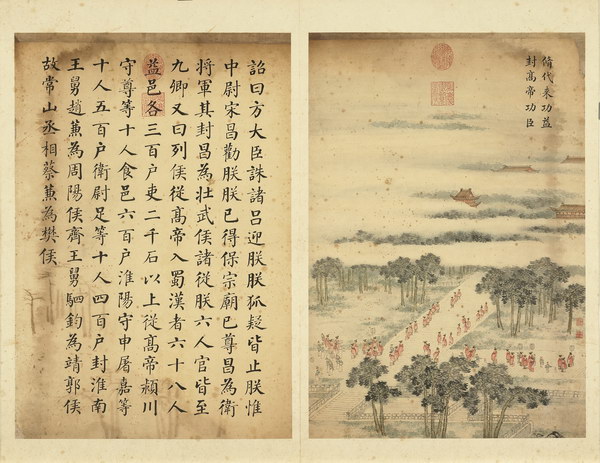 脩代来功益
封髙帝功臣
詔曰方大臣誅諸呂迎朕朕狐疑皆止朕惟
中尉宋昌勸朕朕已得保宗廟已尊昌為衛
將軍其封昌為壯武侯諸從朕六人官皆至
九卿又曰列侯從髙帝入蜀漢者六十八人
益邑各三百户吏二千石以上從髙帝潁川
守尊等十人食邑六百户淮陽守申屠嘉等
十人五百户衛尉足等十人四百户封淮南
王舅趙兼為周陽侯齊王舅駟鈞為靖郭侯
故常山丞相蔡兼為樊侯